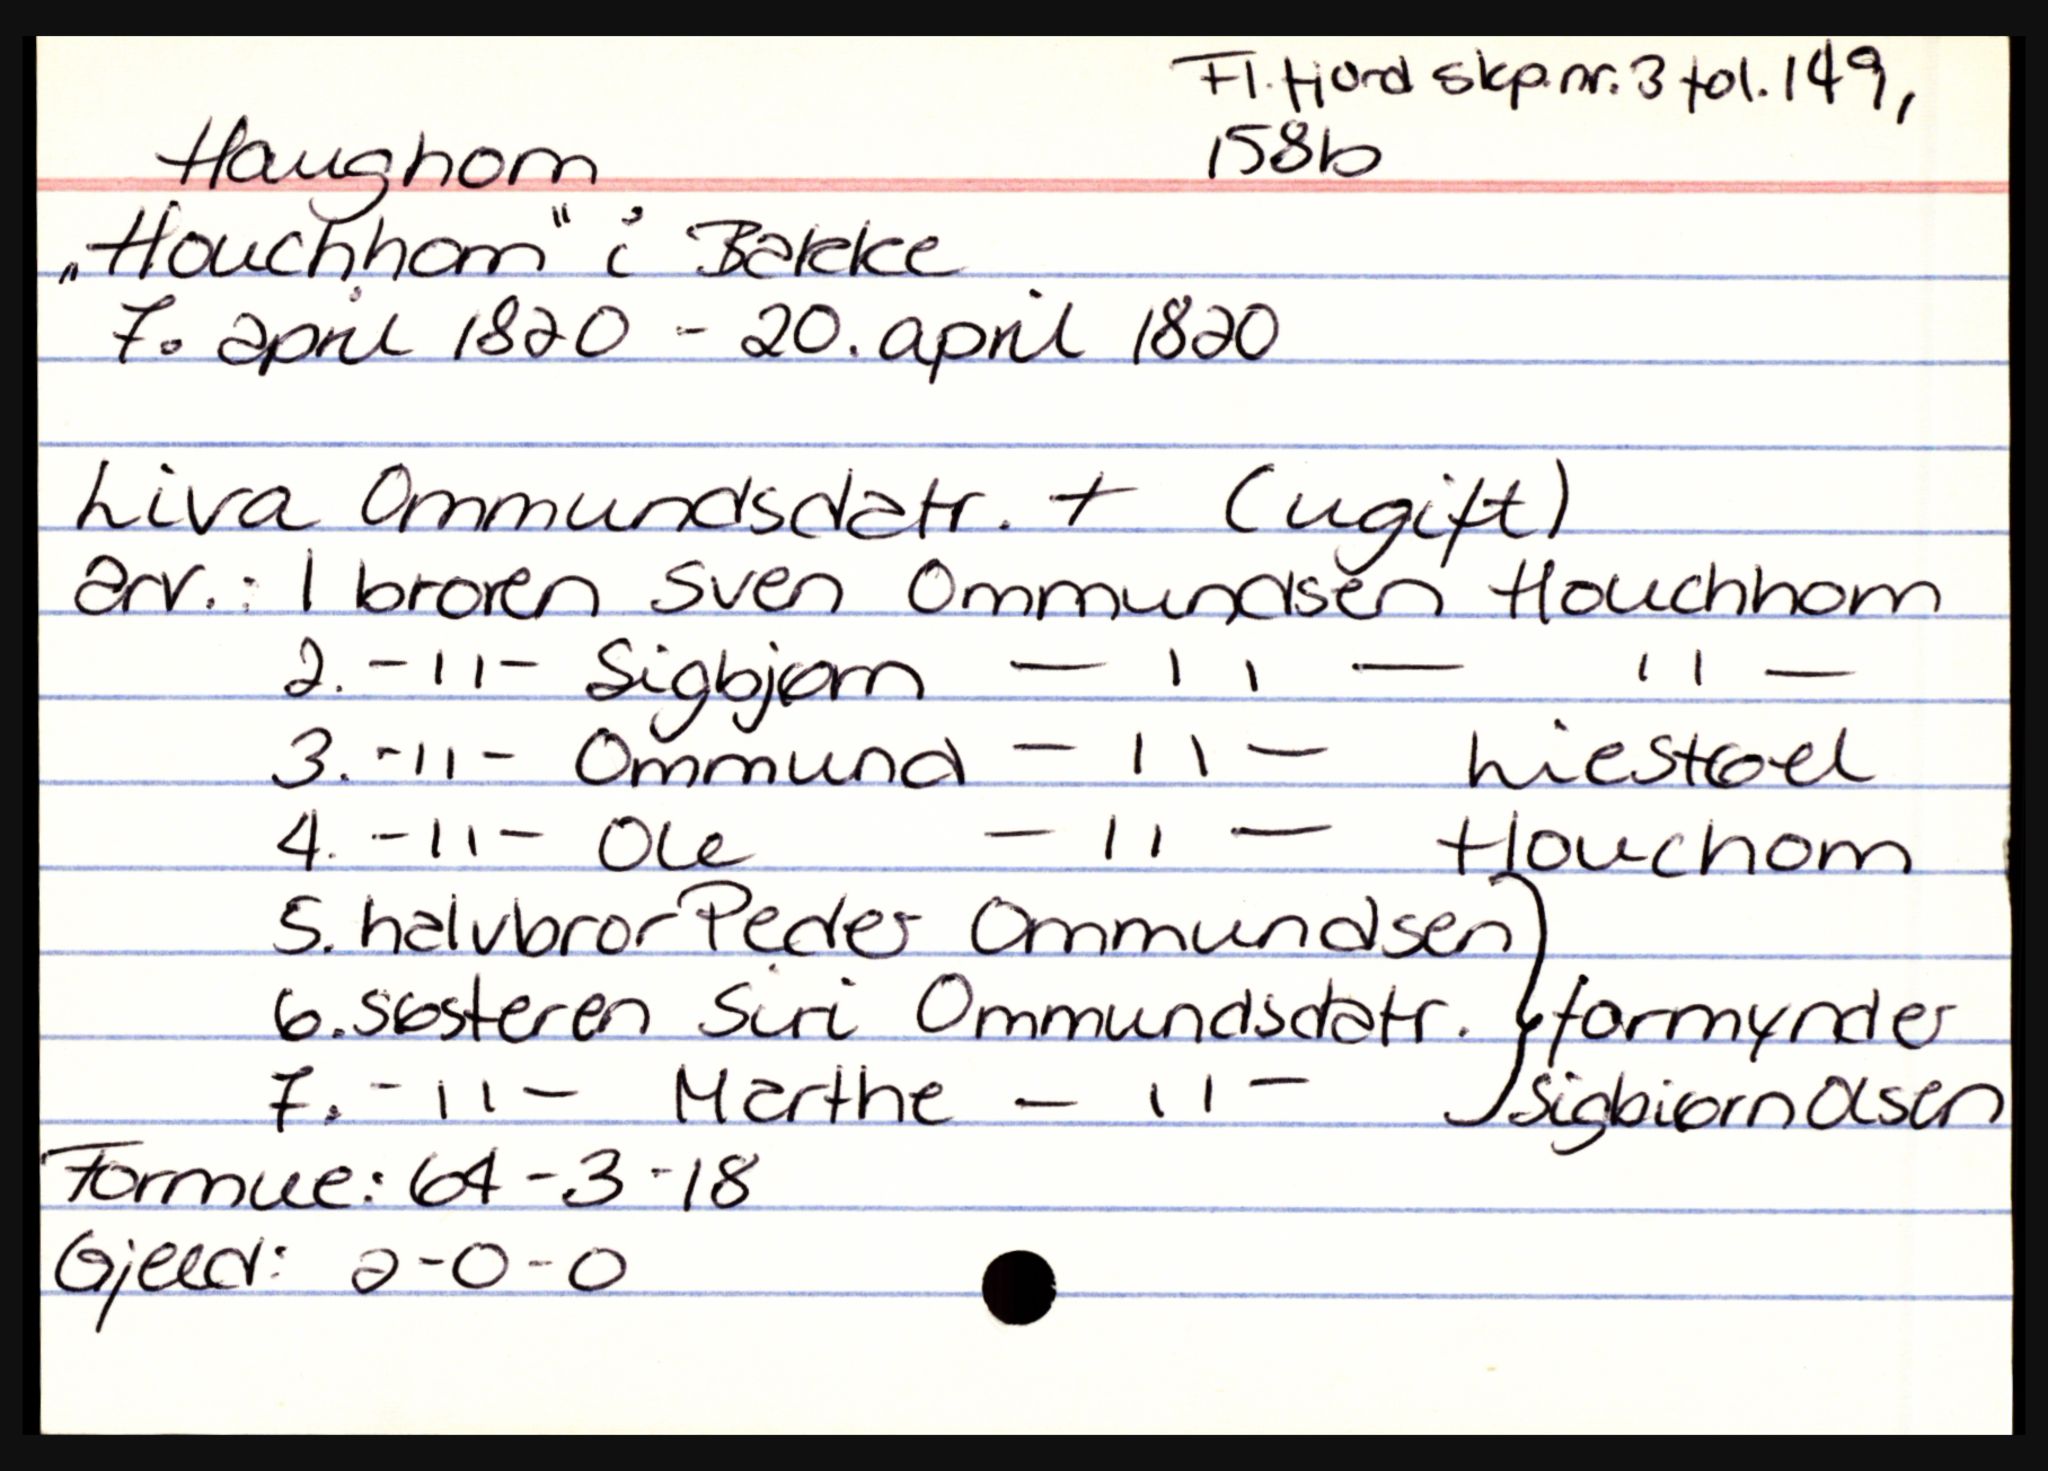 Fl.fjord skp.nr.3 fol.149,
158b
Haughom
„Houchhom" i Bakke
7. april 1820 - 20. april 1820
Liva Ommundsdatr. + (ugift)
arv.: 1 broren Sven Ommundsen Houchhom
2. -11- Sigbjørn — 11 — 11 —
3. -11- Ommund — 11 — Liestøel
4. -11- Ole — 11 — Houchom
5. halvbror Peder Ommundsen
6. søsteren Siri Ommundsdatr. } formynder
7. -11- Marthe — 11 — Sigbiørn Olsen
Formue: 64-3-18
Gjeld: 2-0-0